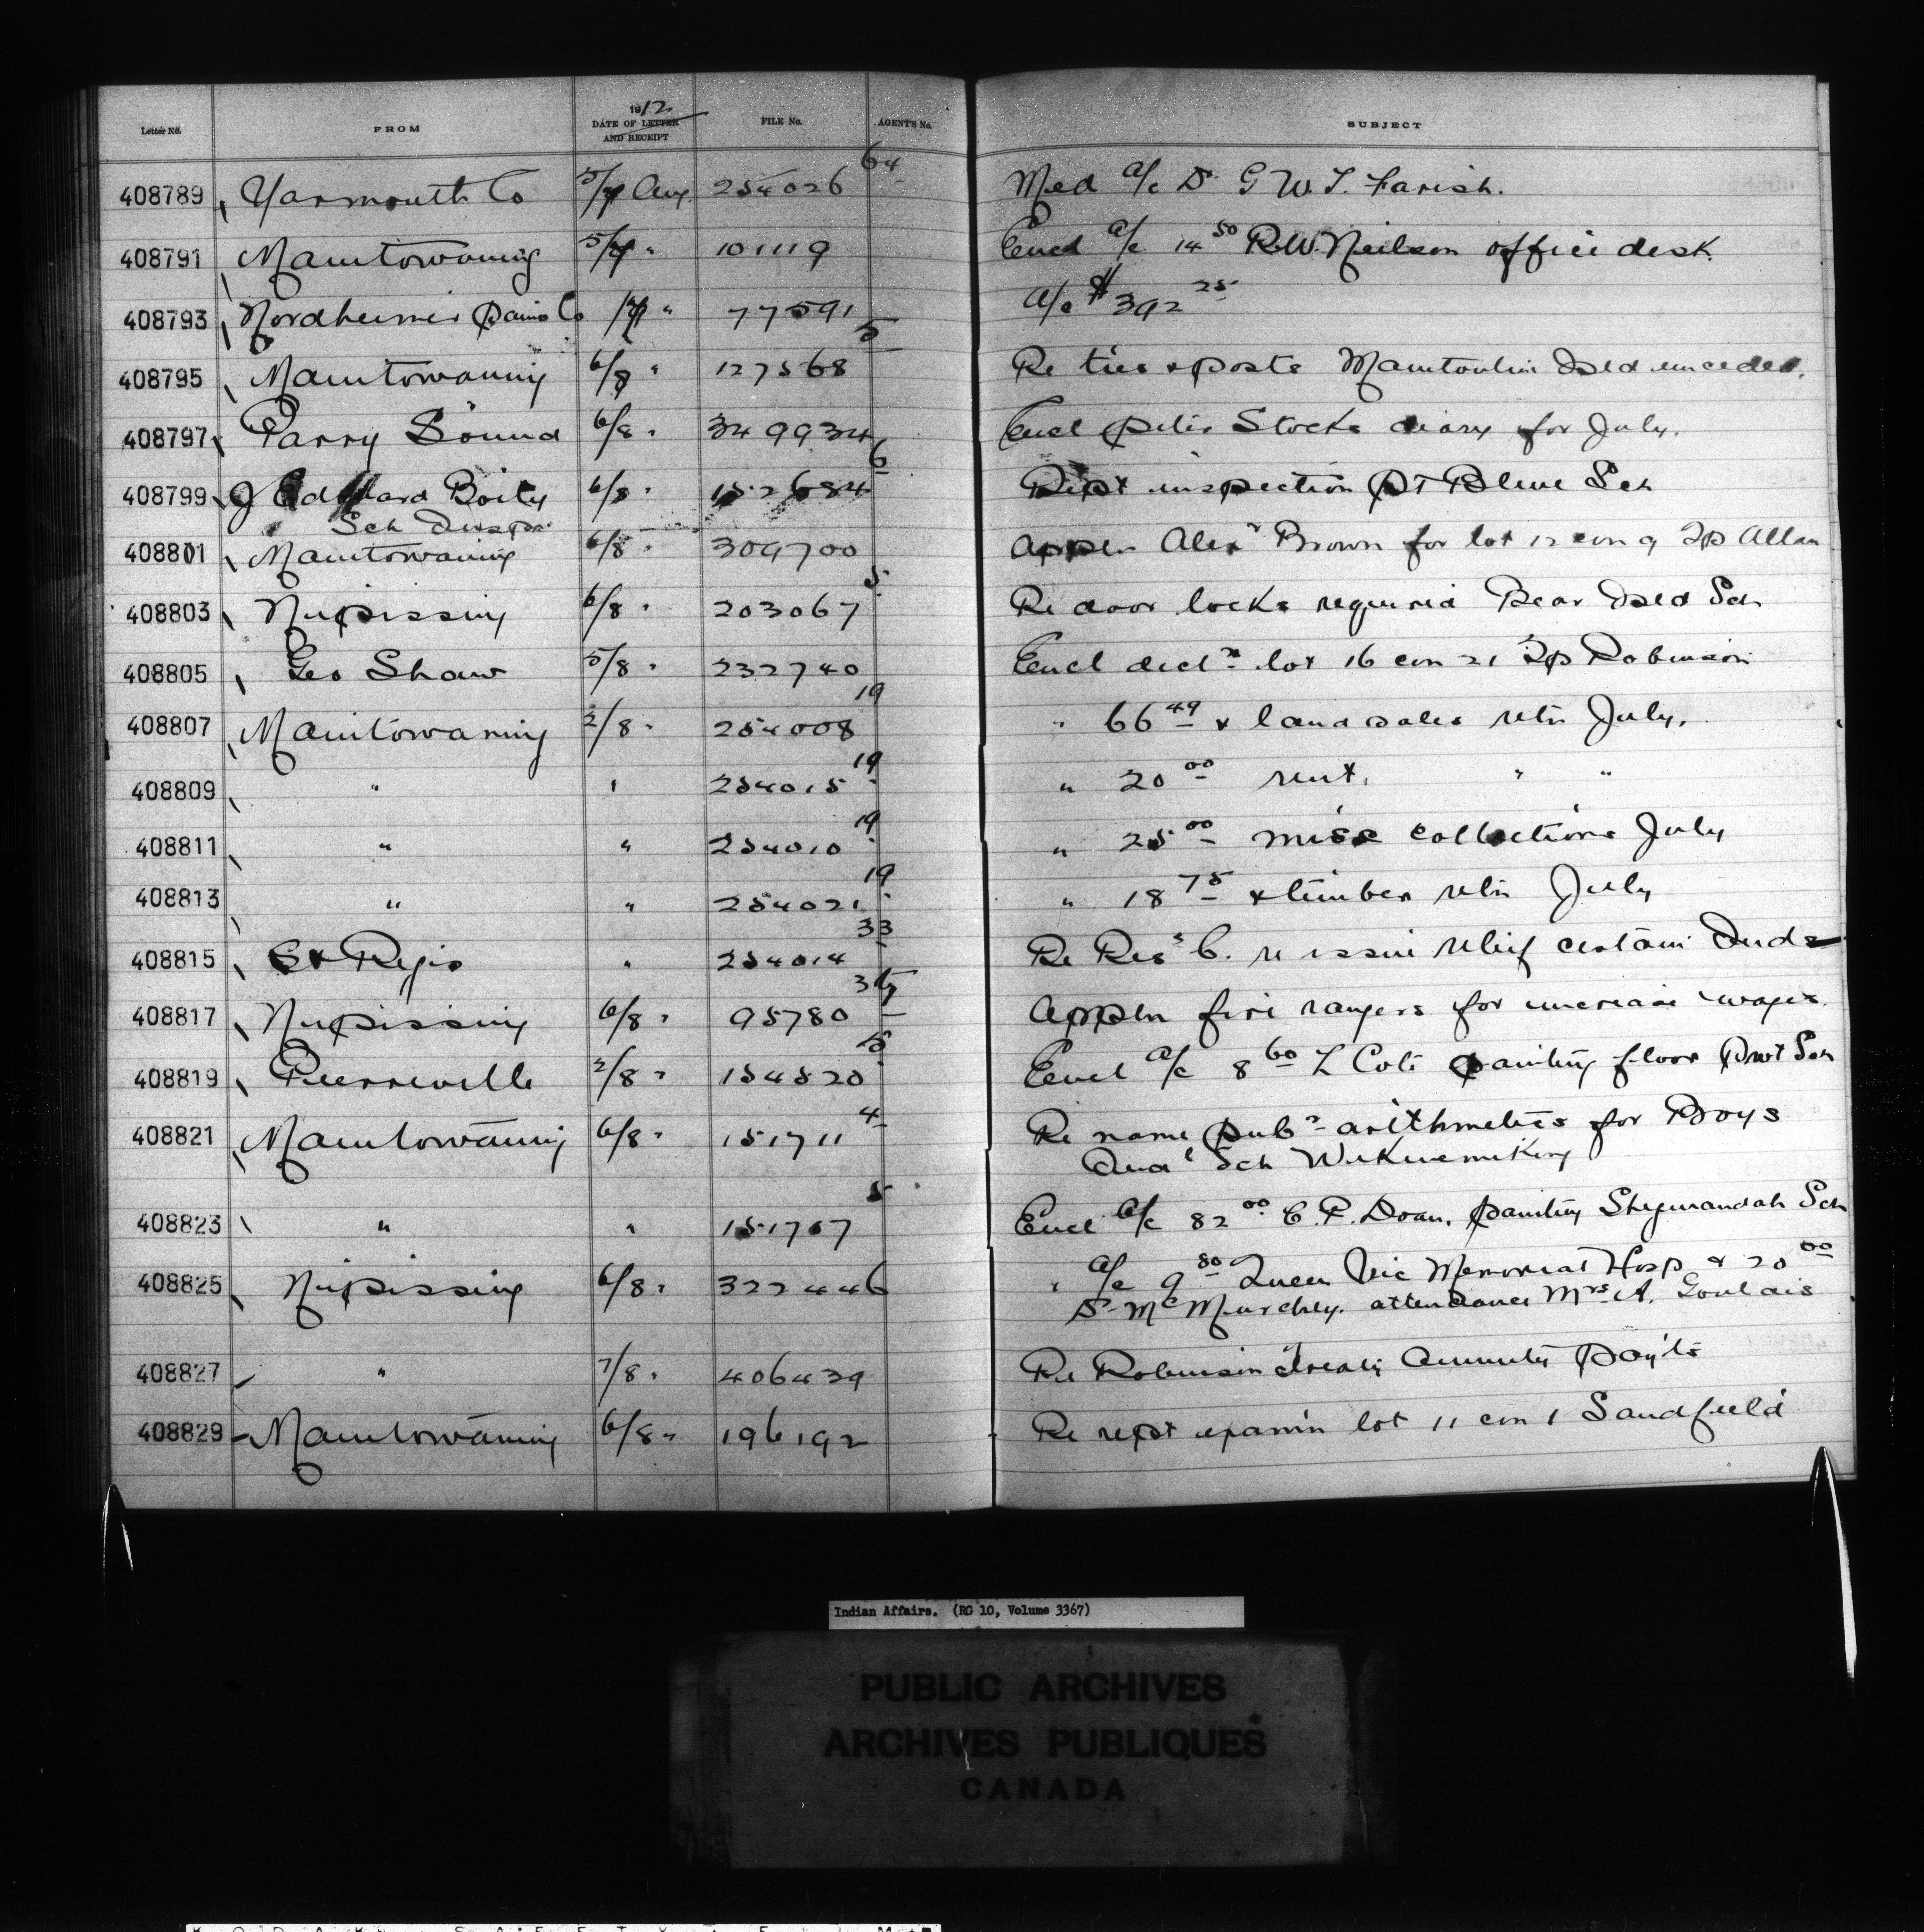 1912
Letter No. FROM DATE OF LETTER AND RECEIPT FILE No. AGENTS No. SUBJECT
408789 Yarmouth Co 5/7 Aug. 254026 64 Med a/c Dr G W. T. Farish.
408791 Manitowaning 5/7 " 101119 Encl a/c 14 50 R.W. Neilson office desk.
408793 Nordheimer Piano Co /7 " 77591 a/c $392 25
408795 Manitowaning 6/8 " 127568 5 Re ties & posts Manitoulin Isld unceded.
408797 Parry Sound 6/8 " 349934 Encl Peter Stocks diary for July.
408799 J Edward Boily 6/8 " 152684 6 Rept inspection Pt Bleue Sch
Sch Inspr
408801 Manitowaning 6/8 " 309700 Appln Alexr Brown for lot 12 con 9 Tp Allan
408803 Nipissing 6/8 " 203067 5 Re door locks required Bear Isld Sch
408805 Geo Shaw 5/8 " 232740 Encl decln lot 16 con 21 Tp Robinson
408807 Manitowaning 2/8 " 254008 19 " 66 49 & land sales retn July.
408809 " " 254015 19 " 20 00 rent. " "
408811 " " 254010 19 " 25 00 misc collections July
408813 " " 254021 19 " 18 75 & timber retn July
408815 St Regis " 254014 33 Re Res s C. re issue relief certain Inds
408817 Nipissing 6/8 " 95780 Appln fire rangers for increase wages.
408819 Pierreville 2/8 " 154520 15 Encl a/c 8 60 L Coté painting floor Prot Sch
408821 Manitowaning 6/8 " 151711 4 Re name pubr arithmetics for Boys
Indl Sch Wikwemikong
408823 " " 151707 5 Encl a/c 82 00 C. P. Doan, painting Shegwiandah Sch
408825 Nipissing 6/8 " 322446 " a/c 9 80 Queen Vic Memorial Hosp & 20 00
Dr McMurchy. attendance Mrs A. Goulais
408827 " 7/8 " 406439 Re Robinson Treaty Annuity Payts
408829 Manitowaning 6/8 " 196192 Re rept examin lot 11 con 1 Sandfield
Indian Affairs. (RG 10, Volume 3367)
PUBLIC ARCHIVES
ARCHIVES PUBLIQUES
CANADA